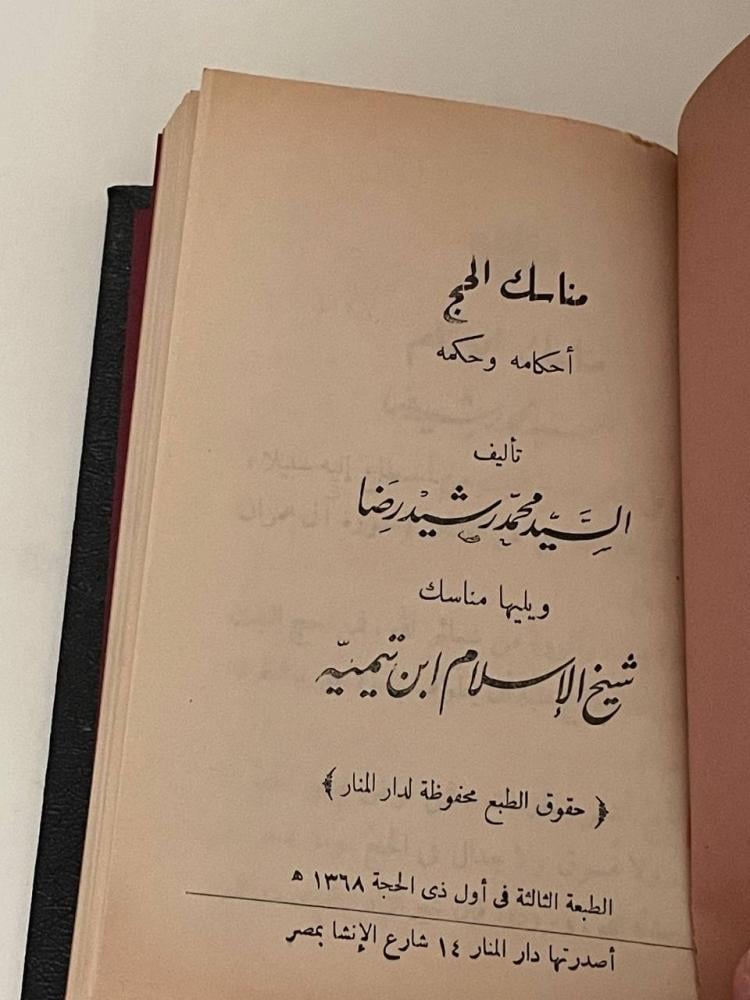 مناسك الحج
أحكامه وحكمه
تأليف
السيد محمد رشيد رضا
ويليها مناسك
شيخ الإسلام ابن تيمية
﴿ حقوق الطبع محفوظة لدار المنار ﴾
الطبعة الثالثة فى أول ذى الحجة ١٣٦٨ هـ
أصدرتها دار المنار ١٤ شارع الإنشا بمصر